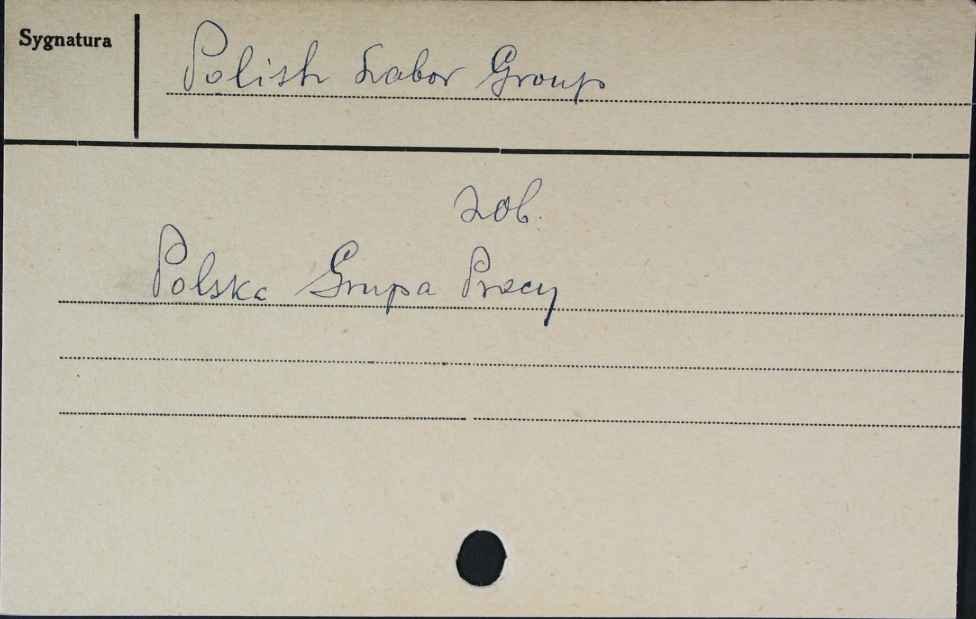 Sygnatura
Polish Labor Group
zob.
Polska Grupa Pracy